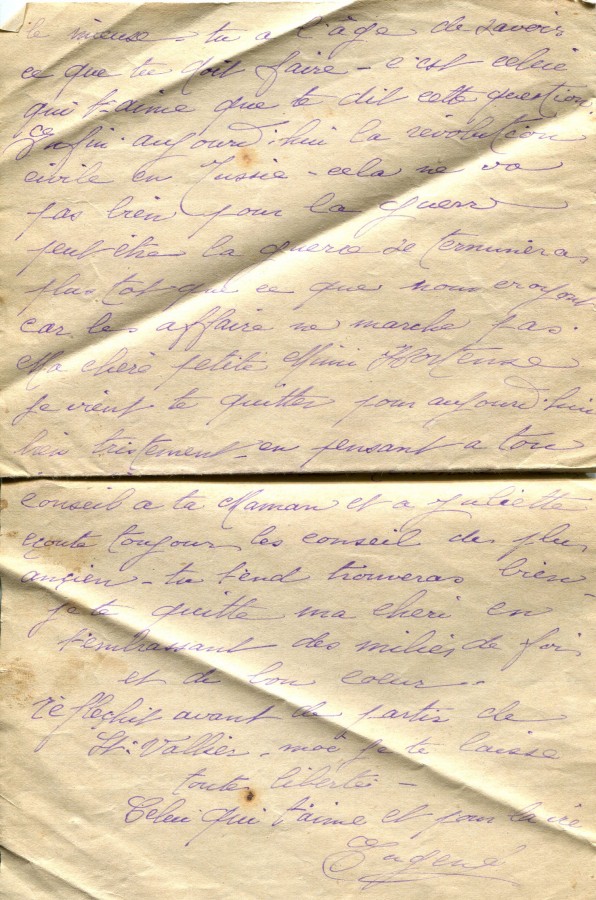 le mieuse - tu a l'âge de savoir
ce que tu doit faire - c'est celui
qui t'aime que te dit cette question
Enfin aujourd'hui la révolution
civile en Russie - cela ne va
pas bien pour la guerre
peut-être la guerre se terminera
plus tôt que ce que nous croyons
car les affaire ne marche pas.
Ma chère petite Mimi Hortense
je vient te quitter pour aujourd'hui
bien tristement en pensant a ton
conseil a ta Maman et a Juliette
écoute toujour les conseil des plus
ancien - tu t'end trouveras bien -
je te quitte ma cheri en
t'embrassant des milies de fois
et de bon coeur.
réfléchit avant de partir de
St. Vallier - moi je te laisse
toute liberté -
Celui qui t'aime et pour la vie
Eugène